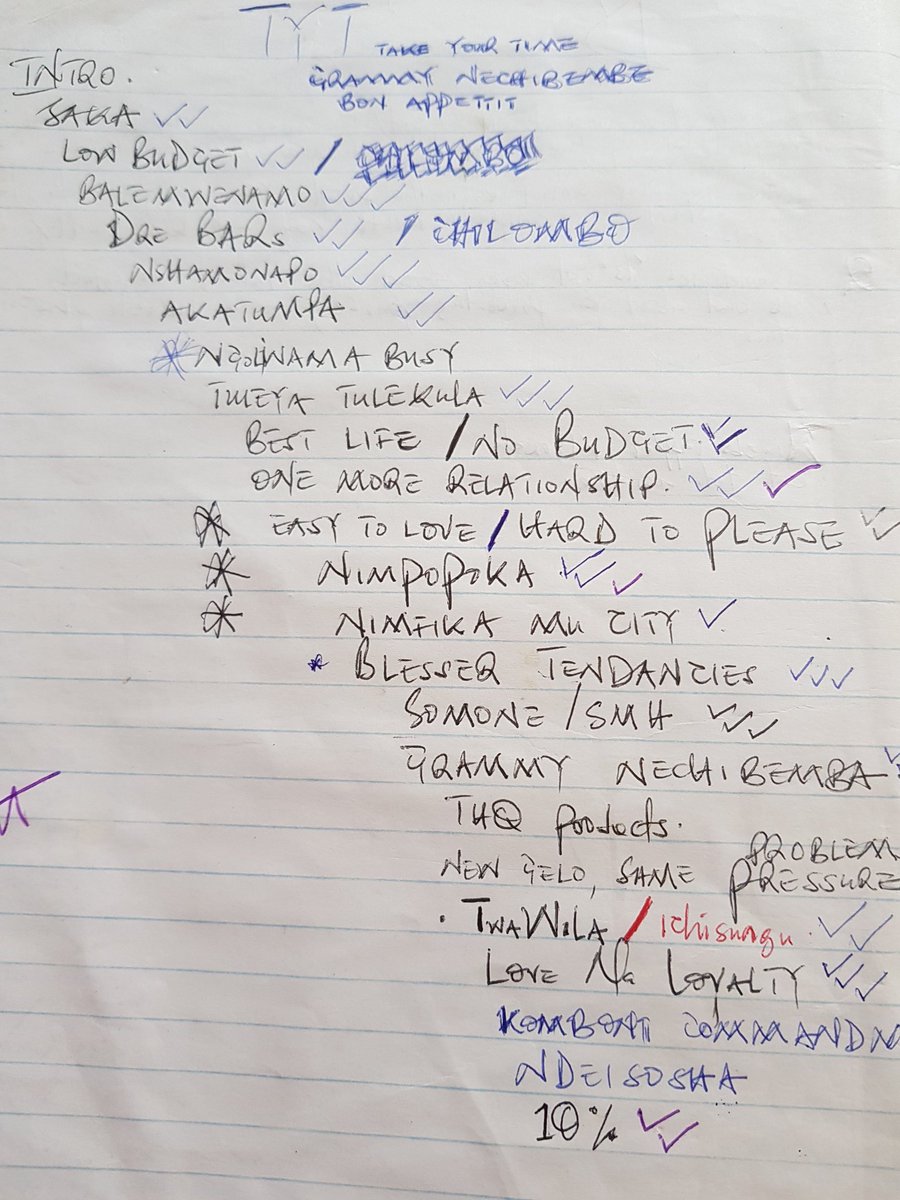 TYT TAKE YOUR TIME
GRAMMY NECHIBEMBE
BON APPETTIT
INTRO.
SAKA
LOW BUDGET /
BALEMWENAMO
DRE BARS / CHILOMBO
NSHAMONAPO
AKATUMPA
* NGOLINAMA BUSY
TWEYA TULEKULA
BEST LIFE / NO BUDGET
ONE MORE RELATIONSHIP.
* EASY TO LOVE / HARD TO PLEASE
* NIMPOPOKA
* NIMFIKA MU CITY
* BLESSER TENDANCIES
SOMONE / SMH
GRAMMY NECHIBEMBA
THQ Products.
PROBLEM
NEW GELO, SAME PRESSURE
. TWAWILA / Ichisungu.
LOVE Na LOYALTY
KOMBONI COMMANDM
NDEISOSHA
10%